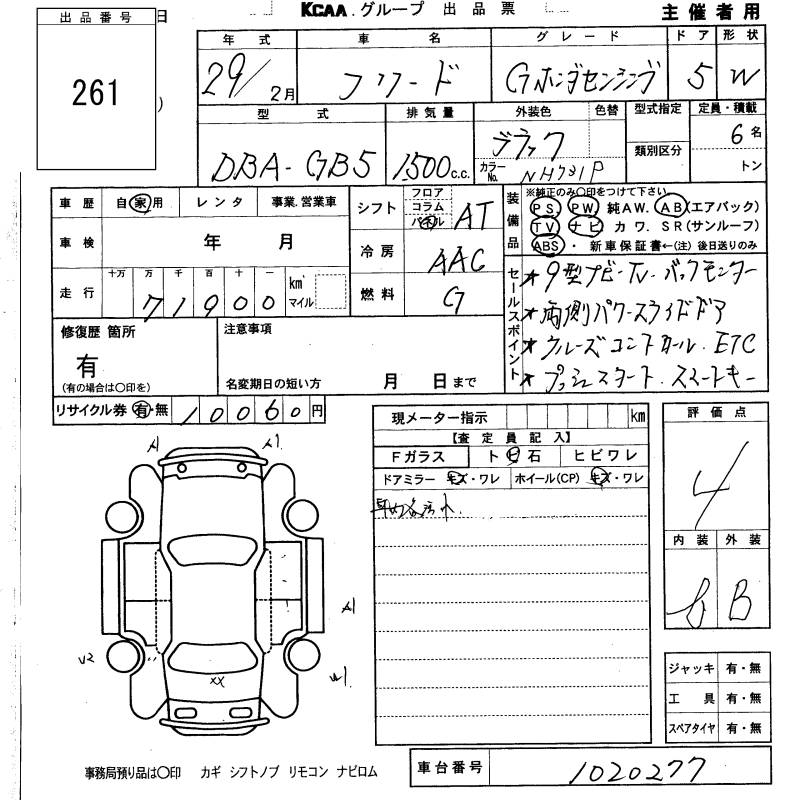 出品番号
日
KCAA.グループ 出品票
主催者用
261
)
年式 車名 グレード ドア 形状
29/2月 フリード Gホンダセンシング 5 W
型式 排気量 外装色 色替 型式指定 定員・積載
DBA-GB5 1500c.c. ブラック 類別区分 6名
カラーNo. NH731P トン
車歴 自家用 レンタ 事業.営業車
車検 年 月
走行 十万 万 千 百 十 一 km マイル
71900
シフト フロア コラム パネル AT
冷房 AAC
燃料 G
装備品
※純正のみ○印をつけて下さい
PS PW 純AW. AB(エアバック)
TV ナビ カワ. SR(サンルーフ)
ABS ・ 新車保証書←(注) 後日送りのみ
セールスポイント
★9型ナビ-TV.バックモニター
★両側パワースライドドア
★クルーズコントロール.ETC
★プッシュスタート.スマートキー
修復歴 箇所
有
(有の場合は○印を)
注意事項
名変期日の短い方 月 日まで
リサイクル券 有・無 10060円
現メーター指示 km
【査定員記入】
Fガラス ト ビ 石 ヒビワレ
ドアミラー キズ・ワレ ホイール(CP) キズ・ワレ
評価点
4
内装 外装
B
A1
A1
A1
v2
w1
xx
ジャッキ 有・無
工具 有・無
スペアタイヤ 有・無
事務局預り品は○印 カギ シフトノブ リモコン ナビロム
車台番号 1020277